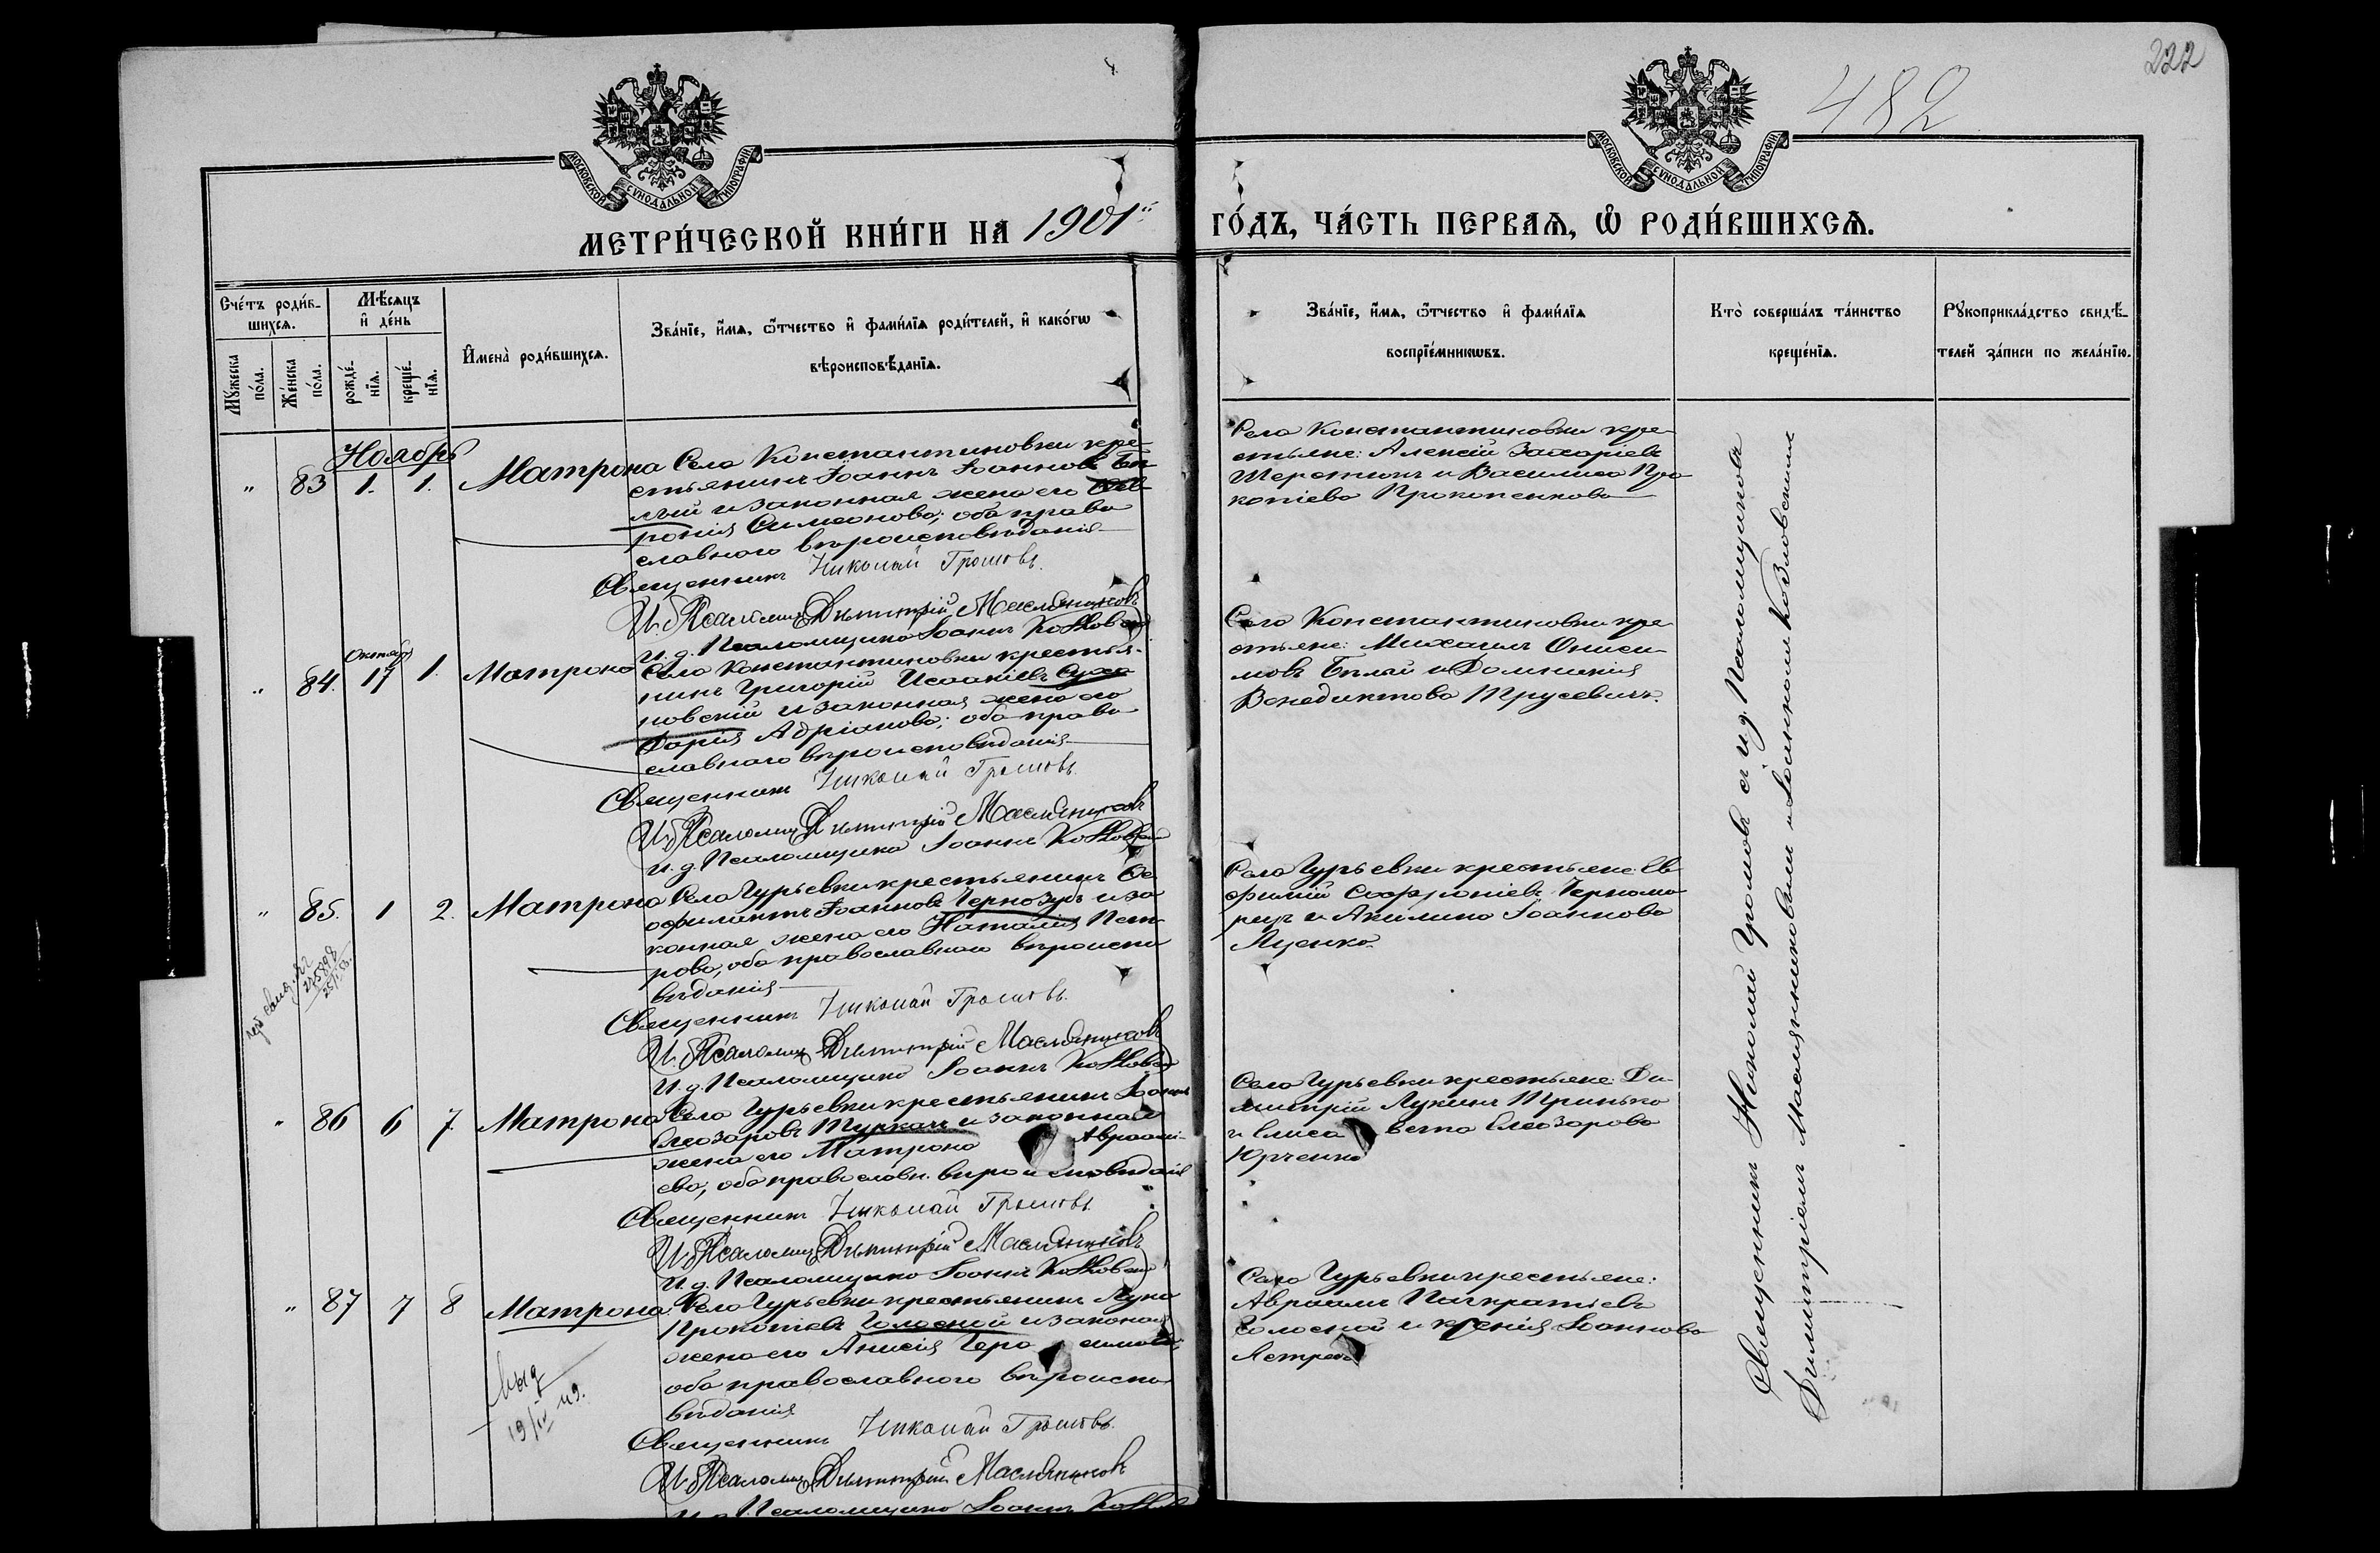 222
482
МОСКОВСКОЙ СѴНОДАЛЬНОЙ ТИПОГРАФІИ
МОСКОВСКОЙ СѴНОДАЛЬНОЙ ТИПОГРАФІИ
МЕТРИ́ЧЕСКОЙ КНИ́ГИ НА 1901й
ГО́ДЪ, ЧА́СТЬ ПЕРВАѦ, Ѡ҆ РОДИ́ВШИХСѦ.
Сче́тъ роди́в-
шихсѧ.
Мѣ́сѧцъ
и҆ де́нь
Мꙋ́жеска
по́ла.
Же́нска
по́ла.
рожде́-
нїѧ.
креще́-
нїѧ.
И҆мена̀ роди́вшихсѧ.
Зва́нїе, и҆́мѧ, ѻ҆́тчество и҆ фамѝлїѧ роди́телей, и҆ како́гѡ
вѣроисповѣ́данїѧ.
Зва́нїе, и҆́мѧ, ѻ҆́тчество и҆ фами́лїѧ
воспрїе́мникѡвъ.
Кто̀ соверша́лъ та́инство
креще́нїѧ.
Рꙋкоприкла́дство свидѣ́-
телей за́писи по жела́нїю.
Ноябрь
" 83 1. 1. Матрона
Села Константиновки кре-
стьянинъ Іоаннъ Іоанновъ Бѣ-
лый и законная жена его Фев-
ронія Симеонова; оба право
славнаго вѣроисповѣданія
Священникъ Николай Громовъ.
И. д. Псаломщ. Димитрій Масляниковъ
И. д. Псаломщика Іоаннъ Козловскій
Села Константиновки кре-
стьяне: Алексій Захаріевъ
Шерстюкъ и Василиса Про
копіева Прокопенкова
" 84. Октяб 17 1. Матрона
Села Константиновки крестья-
нинъ Григорій Исаакіевъ Суха
новскій и законная жена его
Дарія Адріанова; оба право
славнаго вѣроисповѣданія
Священникъ Николай Громовъ.
И. д. Псаломщ. Димитрій Масляниковъ
И. д. Псаломщика Іоаннъ Козловскій
Села Константиновки кре
стьяне: Михаилъ Ониси-
мовъ Бѣлый и Домникія
Венедиктова Трусевичъ.
" 85. 1 2. Матрона
Села Гурьевки крестьянинъ Ѳе
офилактъ Іоанновъ Чернозубъ и за
конная жена его Наталія Пет
рова, оба православнаго вѣроиспо
вѣданія
Священникъ Николай Громовъ.
И. д. Псаломщ. Димитрій Масляниковъ
И. д. Псаломщика Іоаннъ Козловскій
Села Гурьевки крестьяне: Ев
фимій Софроніевъ Черномо
рецъ и Акилина Іоаннова
Луценко.
" 86 6 7. Матрона
Села Гурьевки крестьянинъ Іоаннъ
Елеазаровъ Туркачъ и законная
жена его Матрона Авраамі-
ева; оба православн. вѣроисповѣданія
Священникъ Николай Громовъ.
И. д. Псаломщ. Димитрій Масляниковъ
И. д. Псаломщика Іоаннъ Козловскій
Села Гурьевки крестьяне: Ди-
митрій Лукинъ Тринько
и Елисавета Елеазарова
Юрченко
" 87 7 8 Матрона
Села Гурьевки крестьянинъ Лука
Прокопіевъ Голосной и законная
жена его Анисія Герасимова,
оба православнаго вѣроиспо
вѣданія
Священникъ Николай Громовъ.
И. д. Псаломщ. Димитрій Масляниковъ
И. д. Псаломщика Іоаннъ Козловскій
Села Гурьевки крестьяне:
Авраамъ Панкратіевъ
Голосной и Ксенія Іоаннова
Ястреб
Священникъ Николай Громовъ съ и. д. Псаломщика
Димитріемъ Масляниковымъ и Іоанномъ Козловскимъ